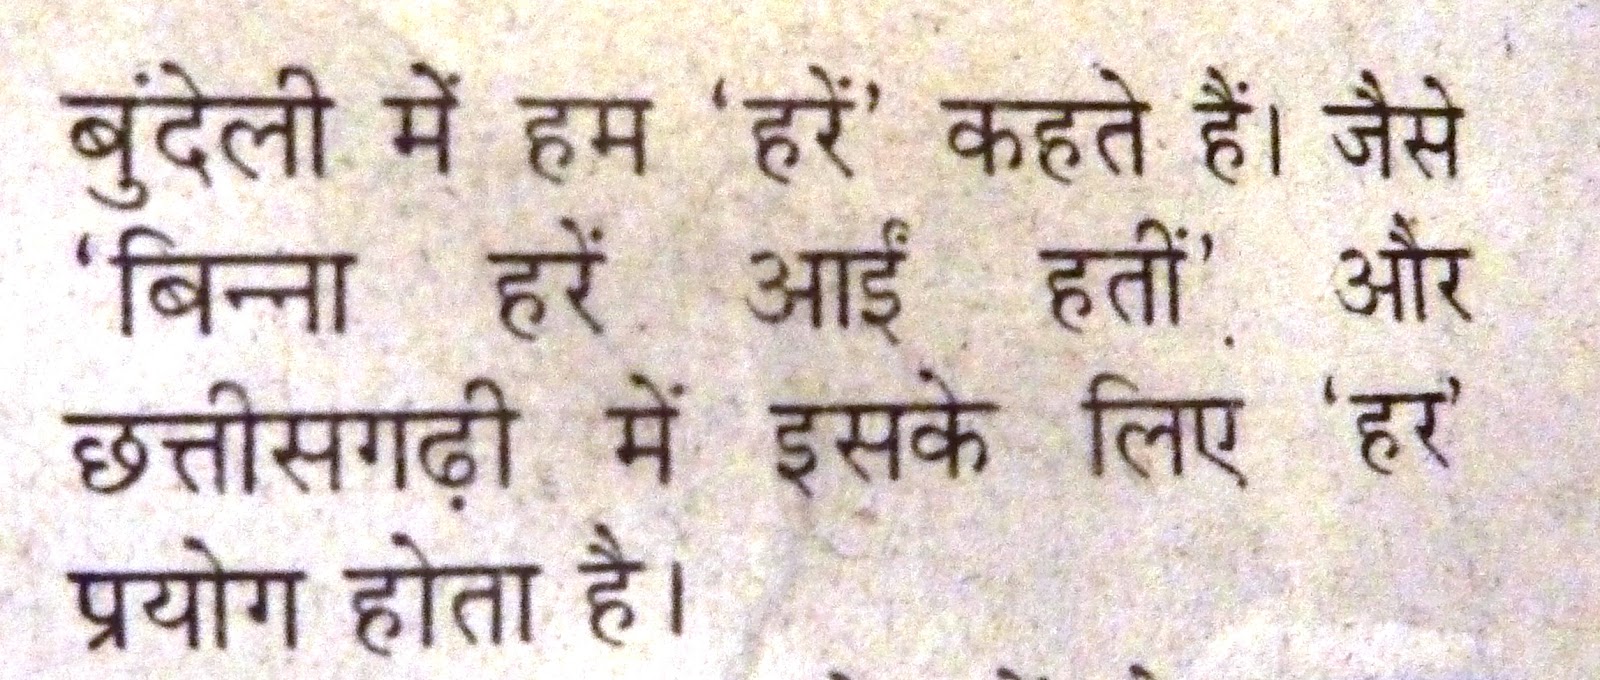 बुंदेली में हम ‘हरें’ कहते हैं। जैसे
‘बिन्ना हरें आईं हतीं’ और
छत्तीसगढ़ी में इसके लिए ‘हर’
प्रयोग होता है।